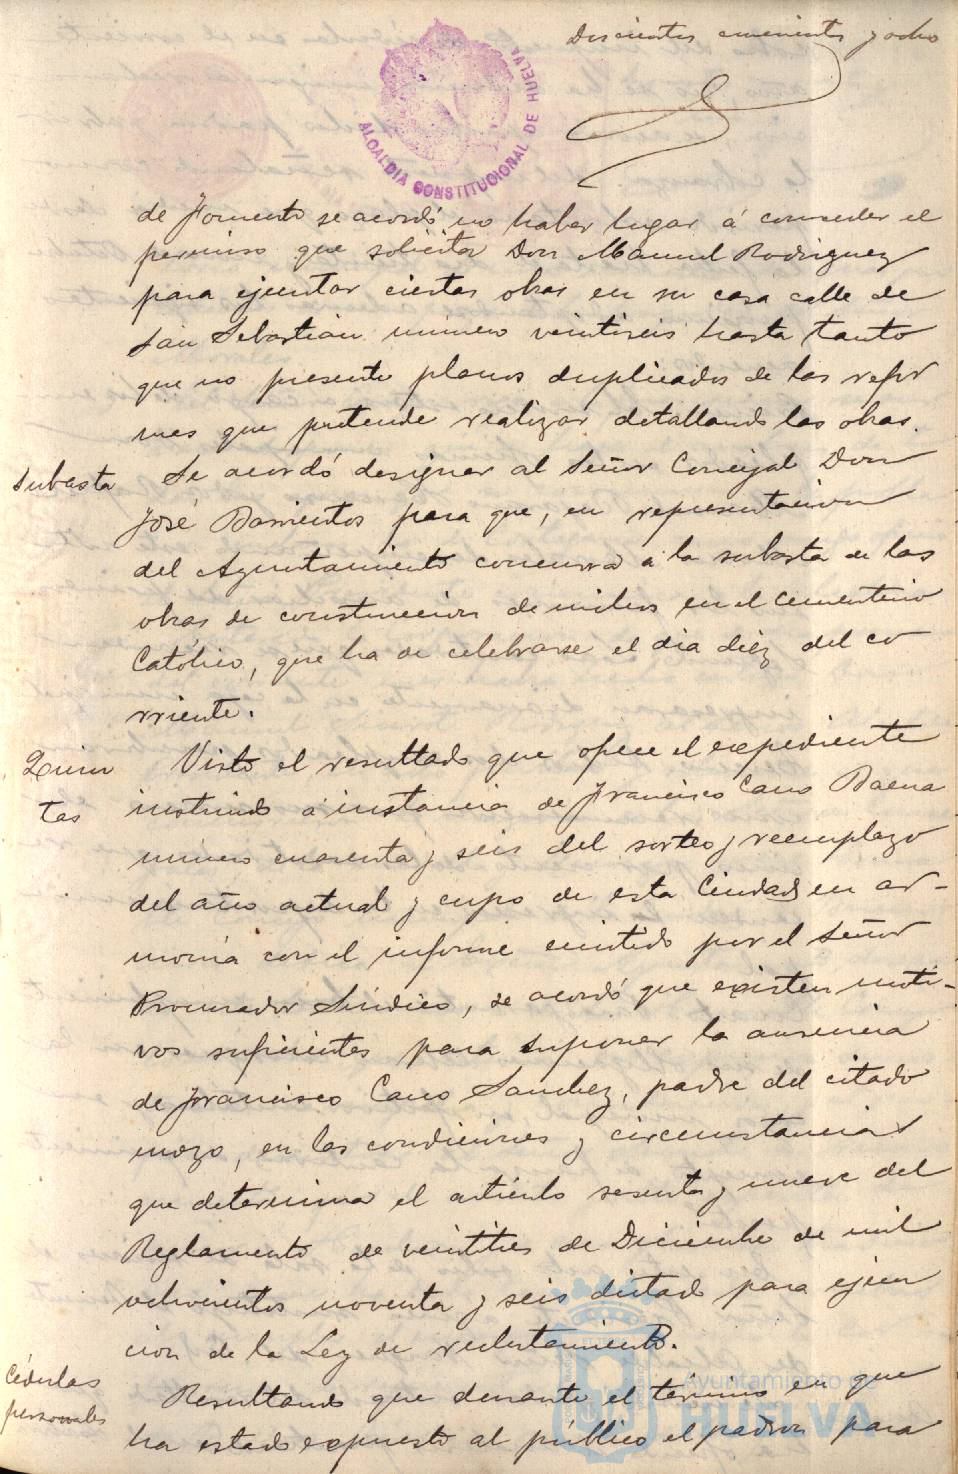 Doscientos cincuenta y ocho
ALCALDIA CONSTITUCIONAL DE HUELVA
de Fomento se acordó no haber lugar á conceder el
permiso que solicita Don Manuel Rodriguez
para ejecutar ciertas obras en su casa calle de
San Sebastián número veintiseis hasta tanto
que no presente planos duplicados de las refor
mas que pretende realizar detallando las obras.
Subasta Se acordó designar al Señor Concejal Don
José Barrientos para que, en representacion
del Ayuntamiento concurra á la subasta de las
obras de construccion de nichos en el Cementerio
Católico, que ha de celebrarse el dia diez del co
rriente.
Quin Visto el resultado que ofrece el expediente
tas instruido á instancia de Francisco Cano Baena
número cuarenta y seis del sorteo y reemplazo
del año actual y cupo de esta Ciudad, en ar-
monía con el informe emitido por el Señor
Procurador Síndico, se acordó que existen moti-
vos suficientes para suponer la ausencia
de Francisco Cano Sanchez, padre del citado
mozo, en las condiciones y circunstancias
que determina el artículo sesenta y nueve del
Reglamento de veintitres de Diciembre de mil
ochocientos noventa y seis dictado para ejecu
cion de la Ley de reclutamiento.
Cédulas Resultando que durante el término en que
personales ha estado expuesto al público el padron para
Ayuntamiento de
HUELVA